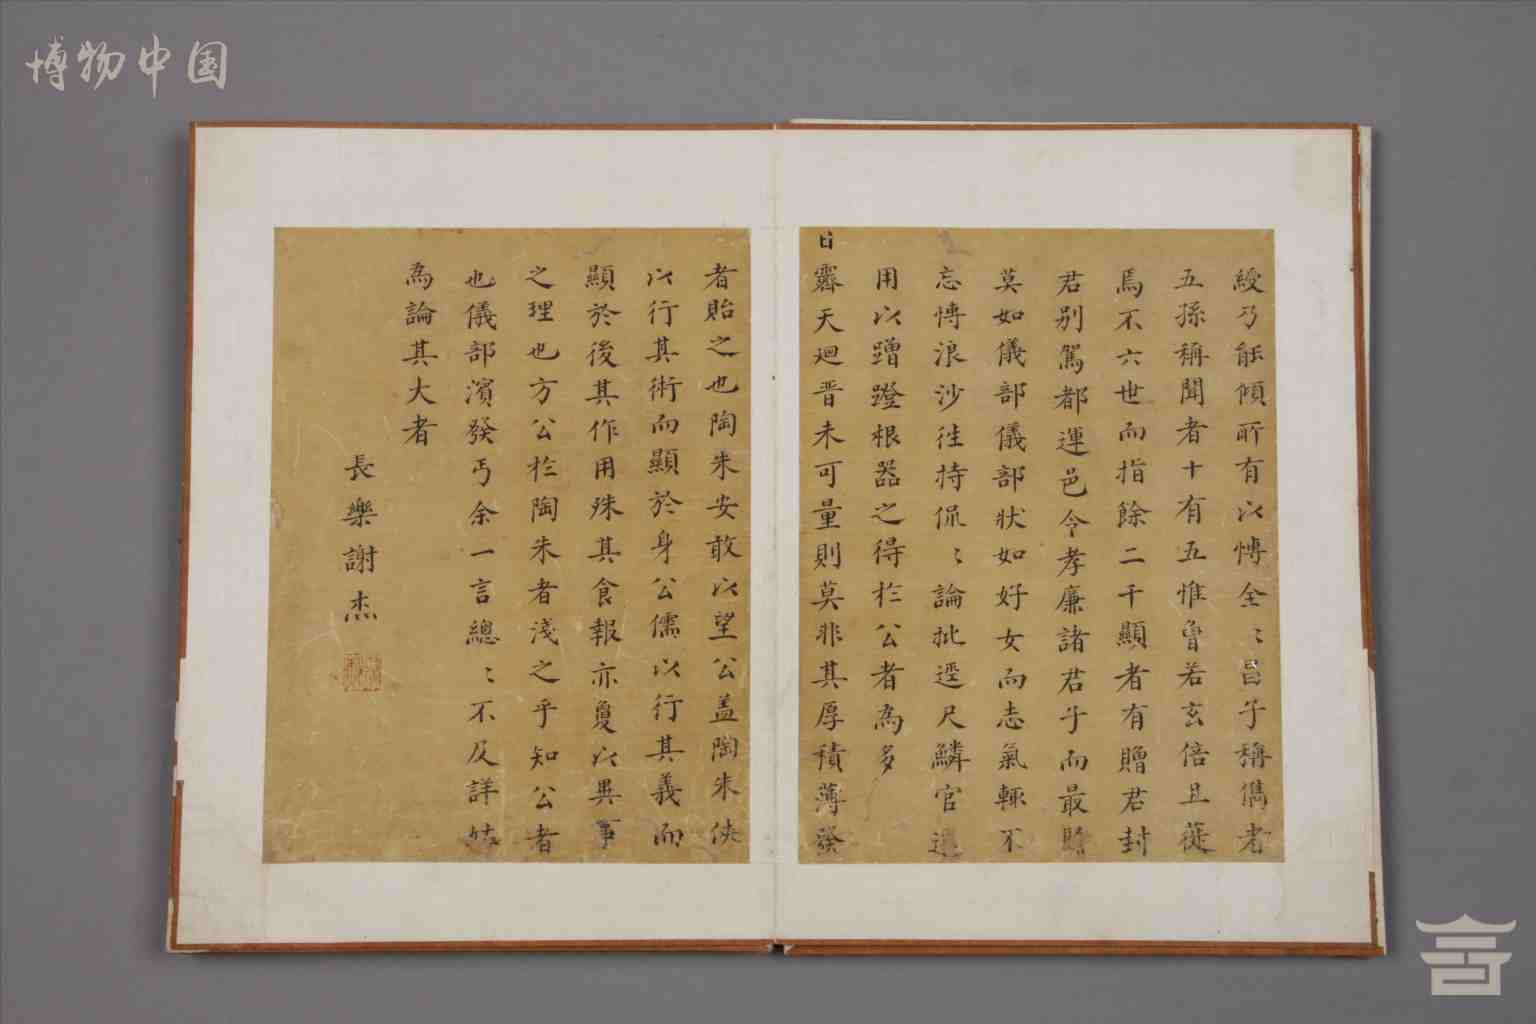 博物中国
綬乃能傾所有以慱全〻昌乎稱儁者
五孫稱聞者十有五惟曾若玄倍且蓰
焉不六世而指餘二千顯者有贈君封
君别駕都運邑令孝廉諸君乎而最
莫如儀部儀部狀如好女而志氣輙不
忘慱浪沙徃持侃〻論批逕尺鱗官
用以蹭蹬根器之得扵公者為多
日霽天迴晋未可量則莫非其厚積薄發
者貽之也陶朱安敢以望公盖陶朱俠
以行其術而顯於身公儒以行其義而
顯於後其作用殊其食報亦敻以異事
之理也方公扵陶朱者淺之乎知公者
也儀部濱發丐余一言總〻不及詳姑
為論其大者
長樂謝杰